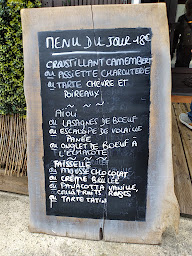 MENU DU JOUR 18€
CROUSTILLANT CAMEMBERT
ou ASSIETTE CHARCUTERIE
ou TARTE CHÈVRE ET
POIREAUX
~ ~ ~
AIOLI
ou LASAGNES DE BOEUF
ou ESCALOPE DE VOLAILLE
PANÉE
ou ONGLET DE BOEUF À
L'ÉCHALOTE
~ ~ ~
FAISSELLE
ou MOUSSE CHOCOLAT
ou CRÈME BRÛLÉE
ou PANACOTTA VANILLE,
FRUITS ROUGES
ou TARTE TATIN